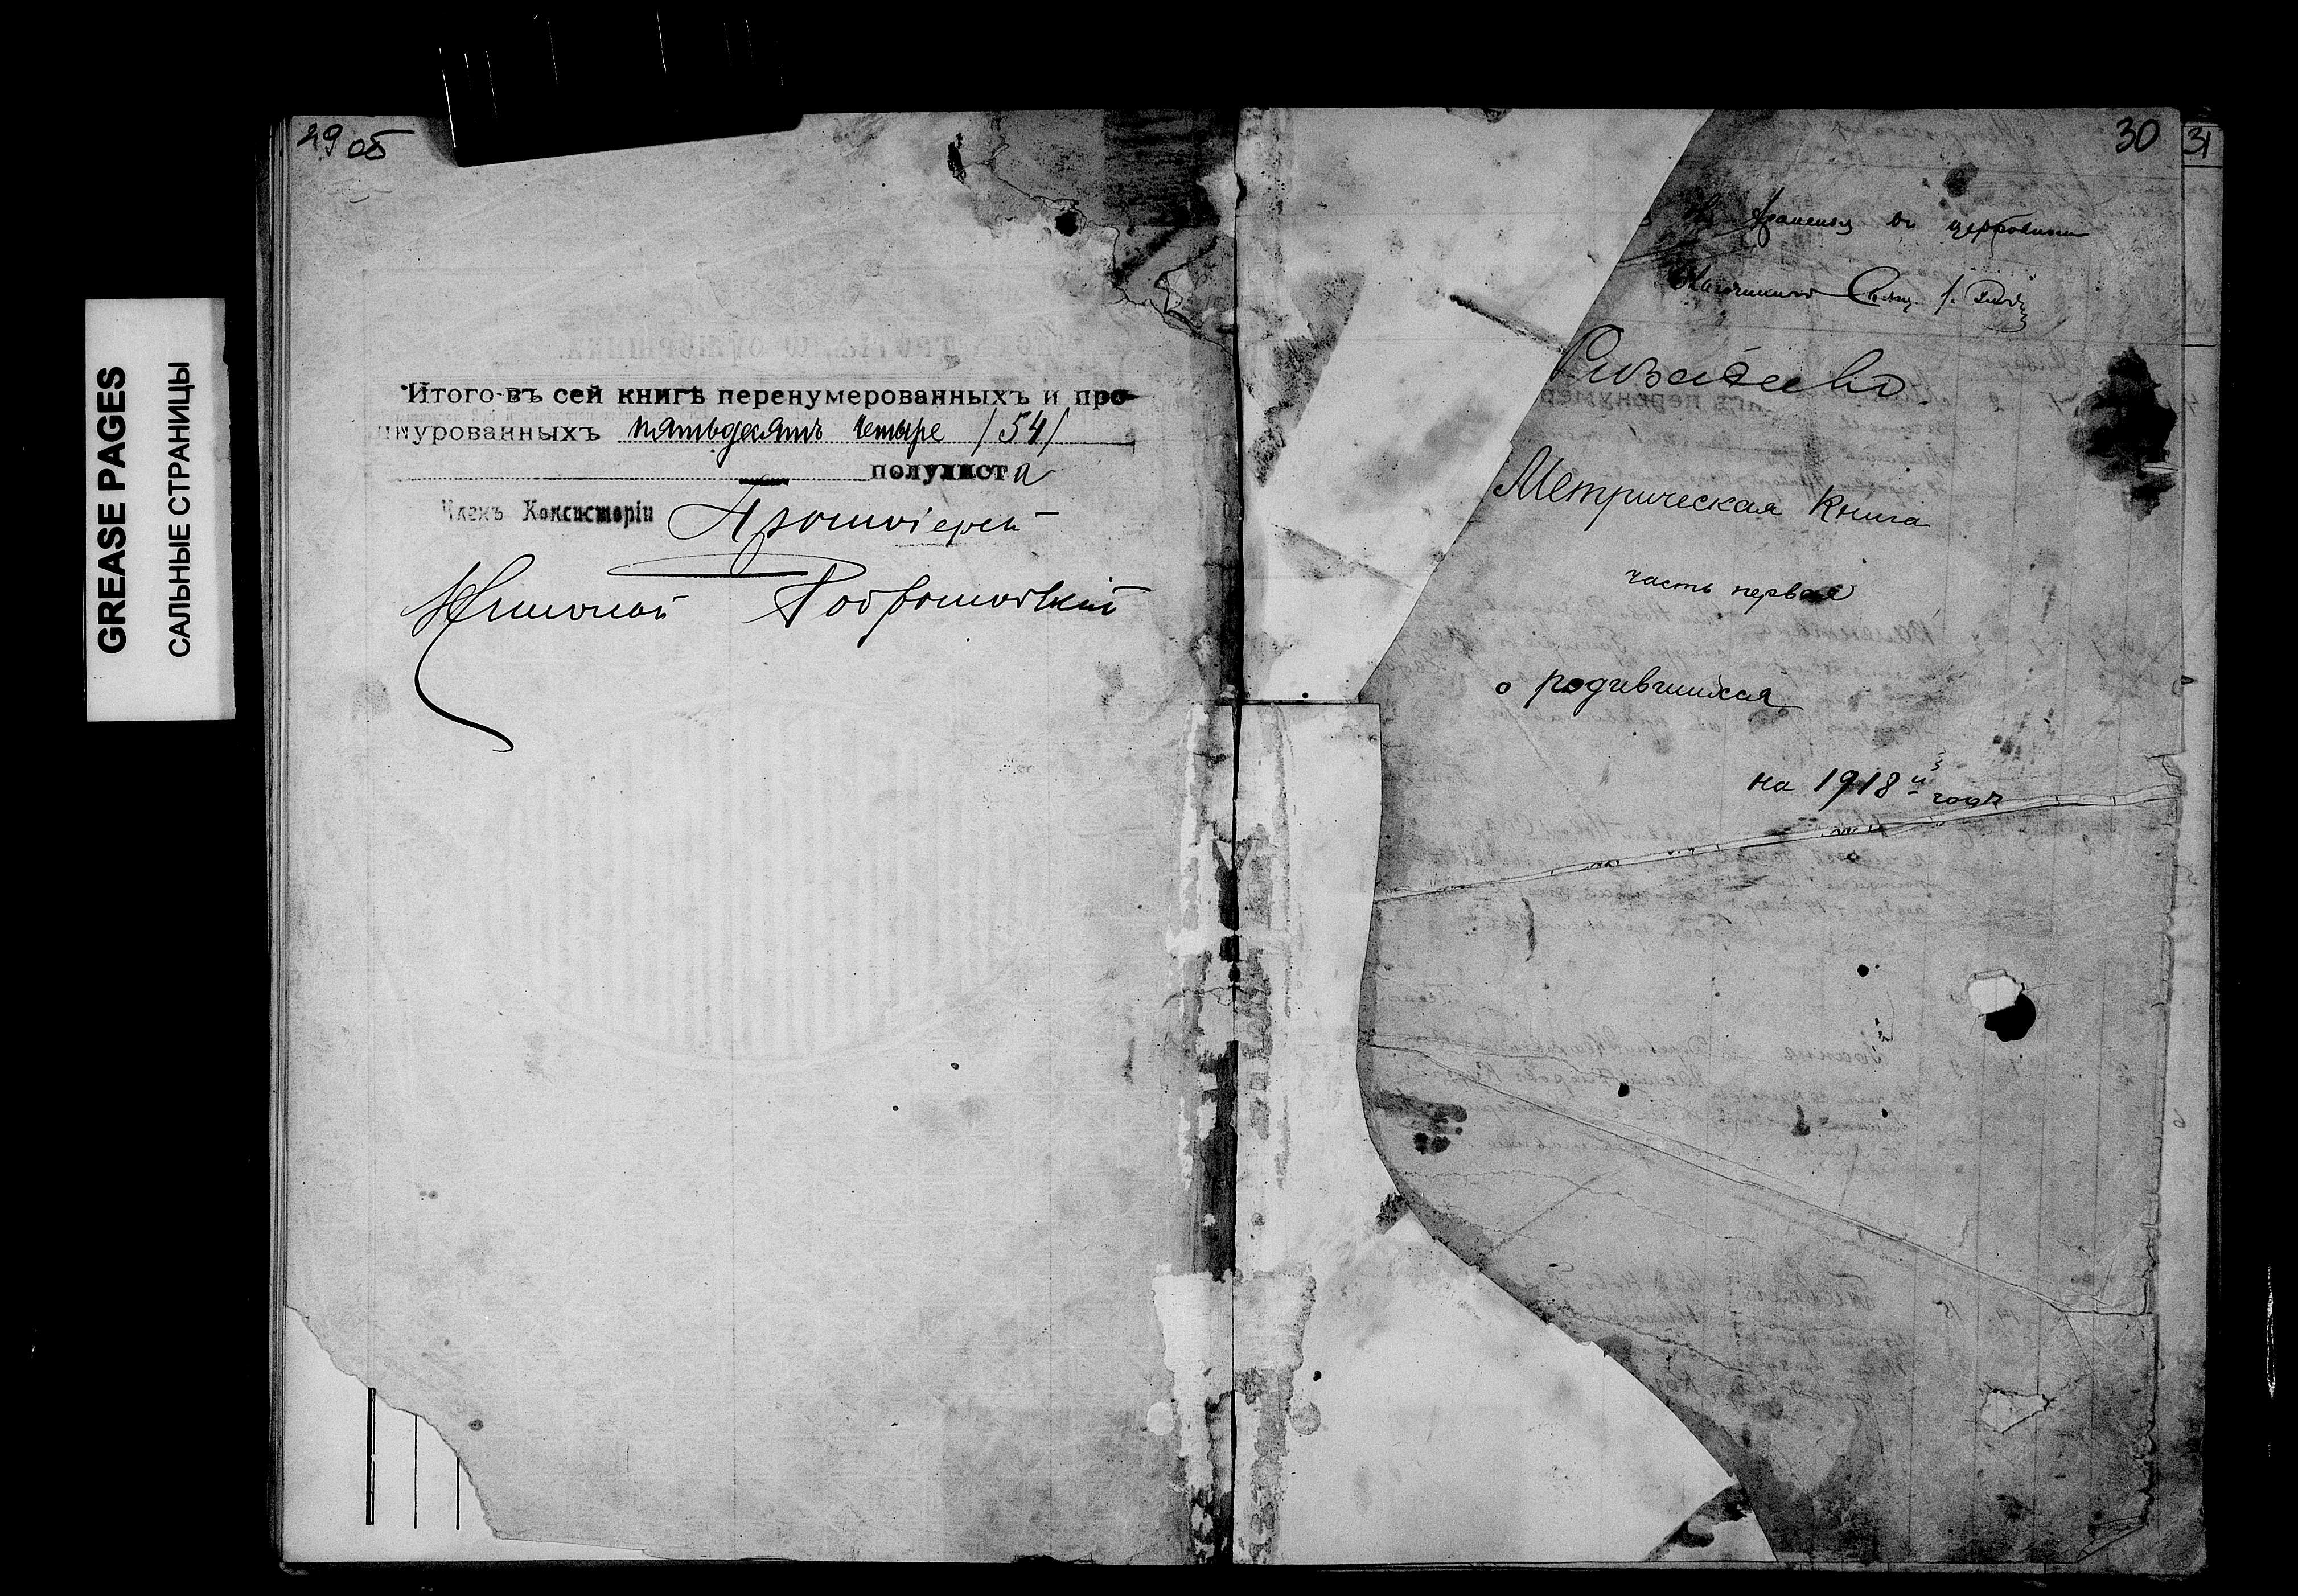 GREASE PAGES
САЛЬНЫЕ СТРАНИЦЫ
29 об
Итого въ сей книгѣ перенумерованныхъ и про-
шнурованныхъ пятьдесятъ четыре /54/
полулиста
Членъ Консисторіи Протоіерей
Николай
30
31
храненія въ церковном
Благочинный Свящ.
Метрическая Книга
часть первая
о родившихся
на 1918й годъ